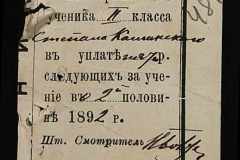 ученика II класса
Степана Калинского
въ уплатѣ р.
слѣдующихъ за уче
ніе во 2й полови
нѣ 1892 г.
Шт. Смотритель